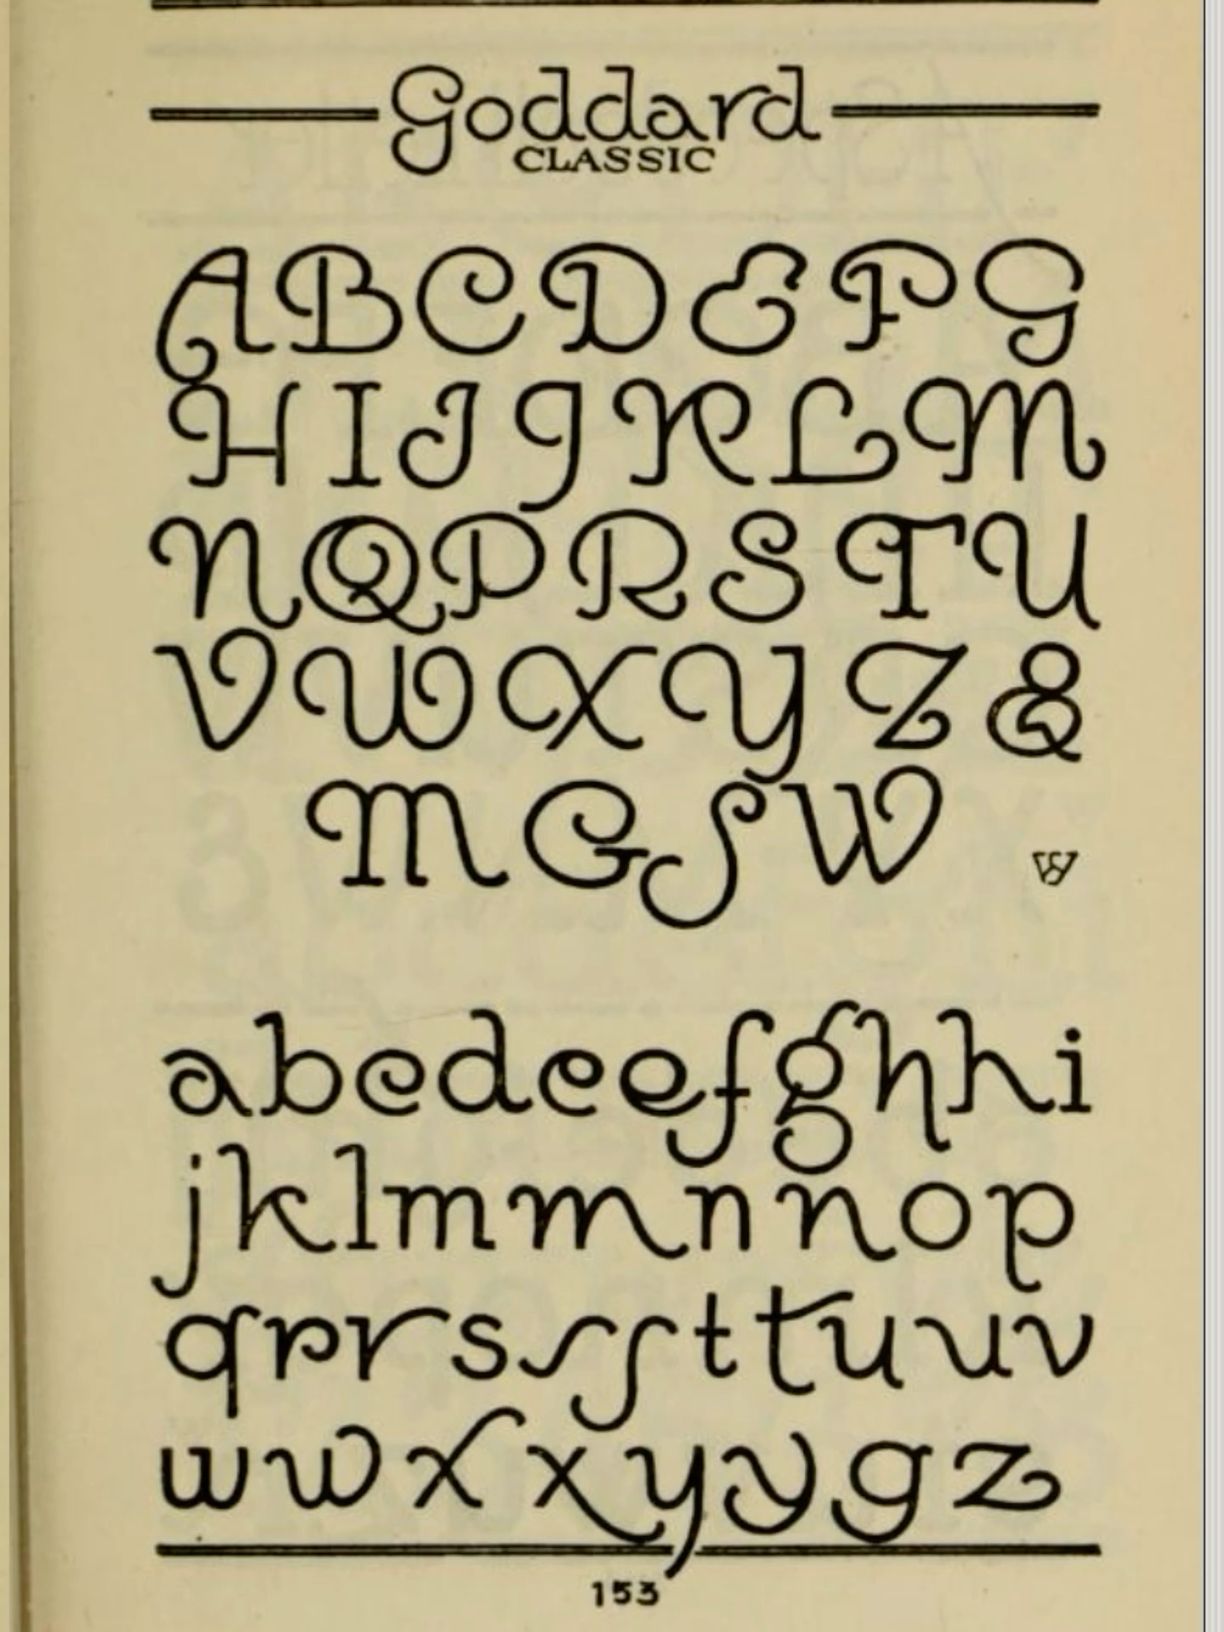 Goddard
CLASSIC
A B C D E F G
H I J J K L M
N Q P R S T U
V W X Y Z &
M G S W
a b c d e e f g h h i
j k l m m n n o p
q r r s s s t t u u v
w w x x y y g z
153